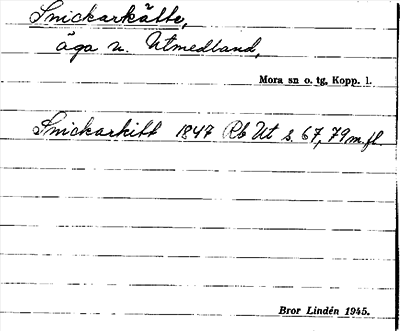 Snickarkätte,
äga n. Utmedland,
Mora sn o. tg, Kopp. l.
Snickarkitt 1847 Rb Ut s. 67, 79 m.fl.
Bror Lindén 1945.